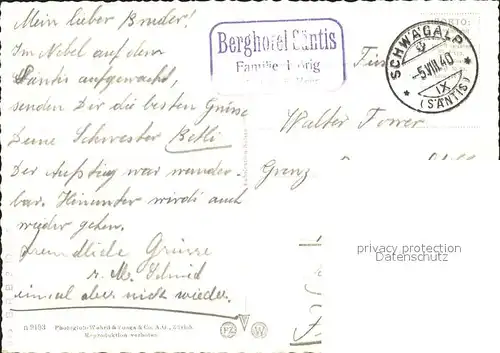 Mein lieber Bruder!
Im Nebel auf dem
Säntis aufgewacht,
senden Dir die besten Grüsse
Deine Schwester Betli
Der Aufstieg war wunder-
bar. Hinunter wirds auch
wieder gehen.
Freundliche Grüsse
einmal aber nicht wieder.
Berghotel Säntis
Familie
SCHWÄGALP
-5.VIII.40
IX
(SÄNTIS)
PORTO:
Walter
Grenz
privacy protection
Datenschutz
Photoglob-Wehrli & Vouga & Co. A.G., Zürich
Reproduktion verboten
PZ W